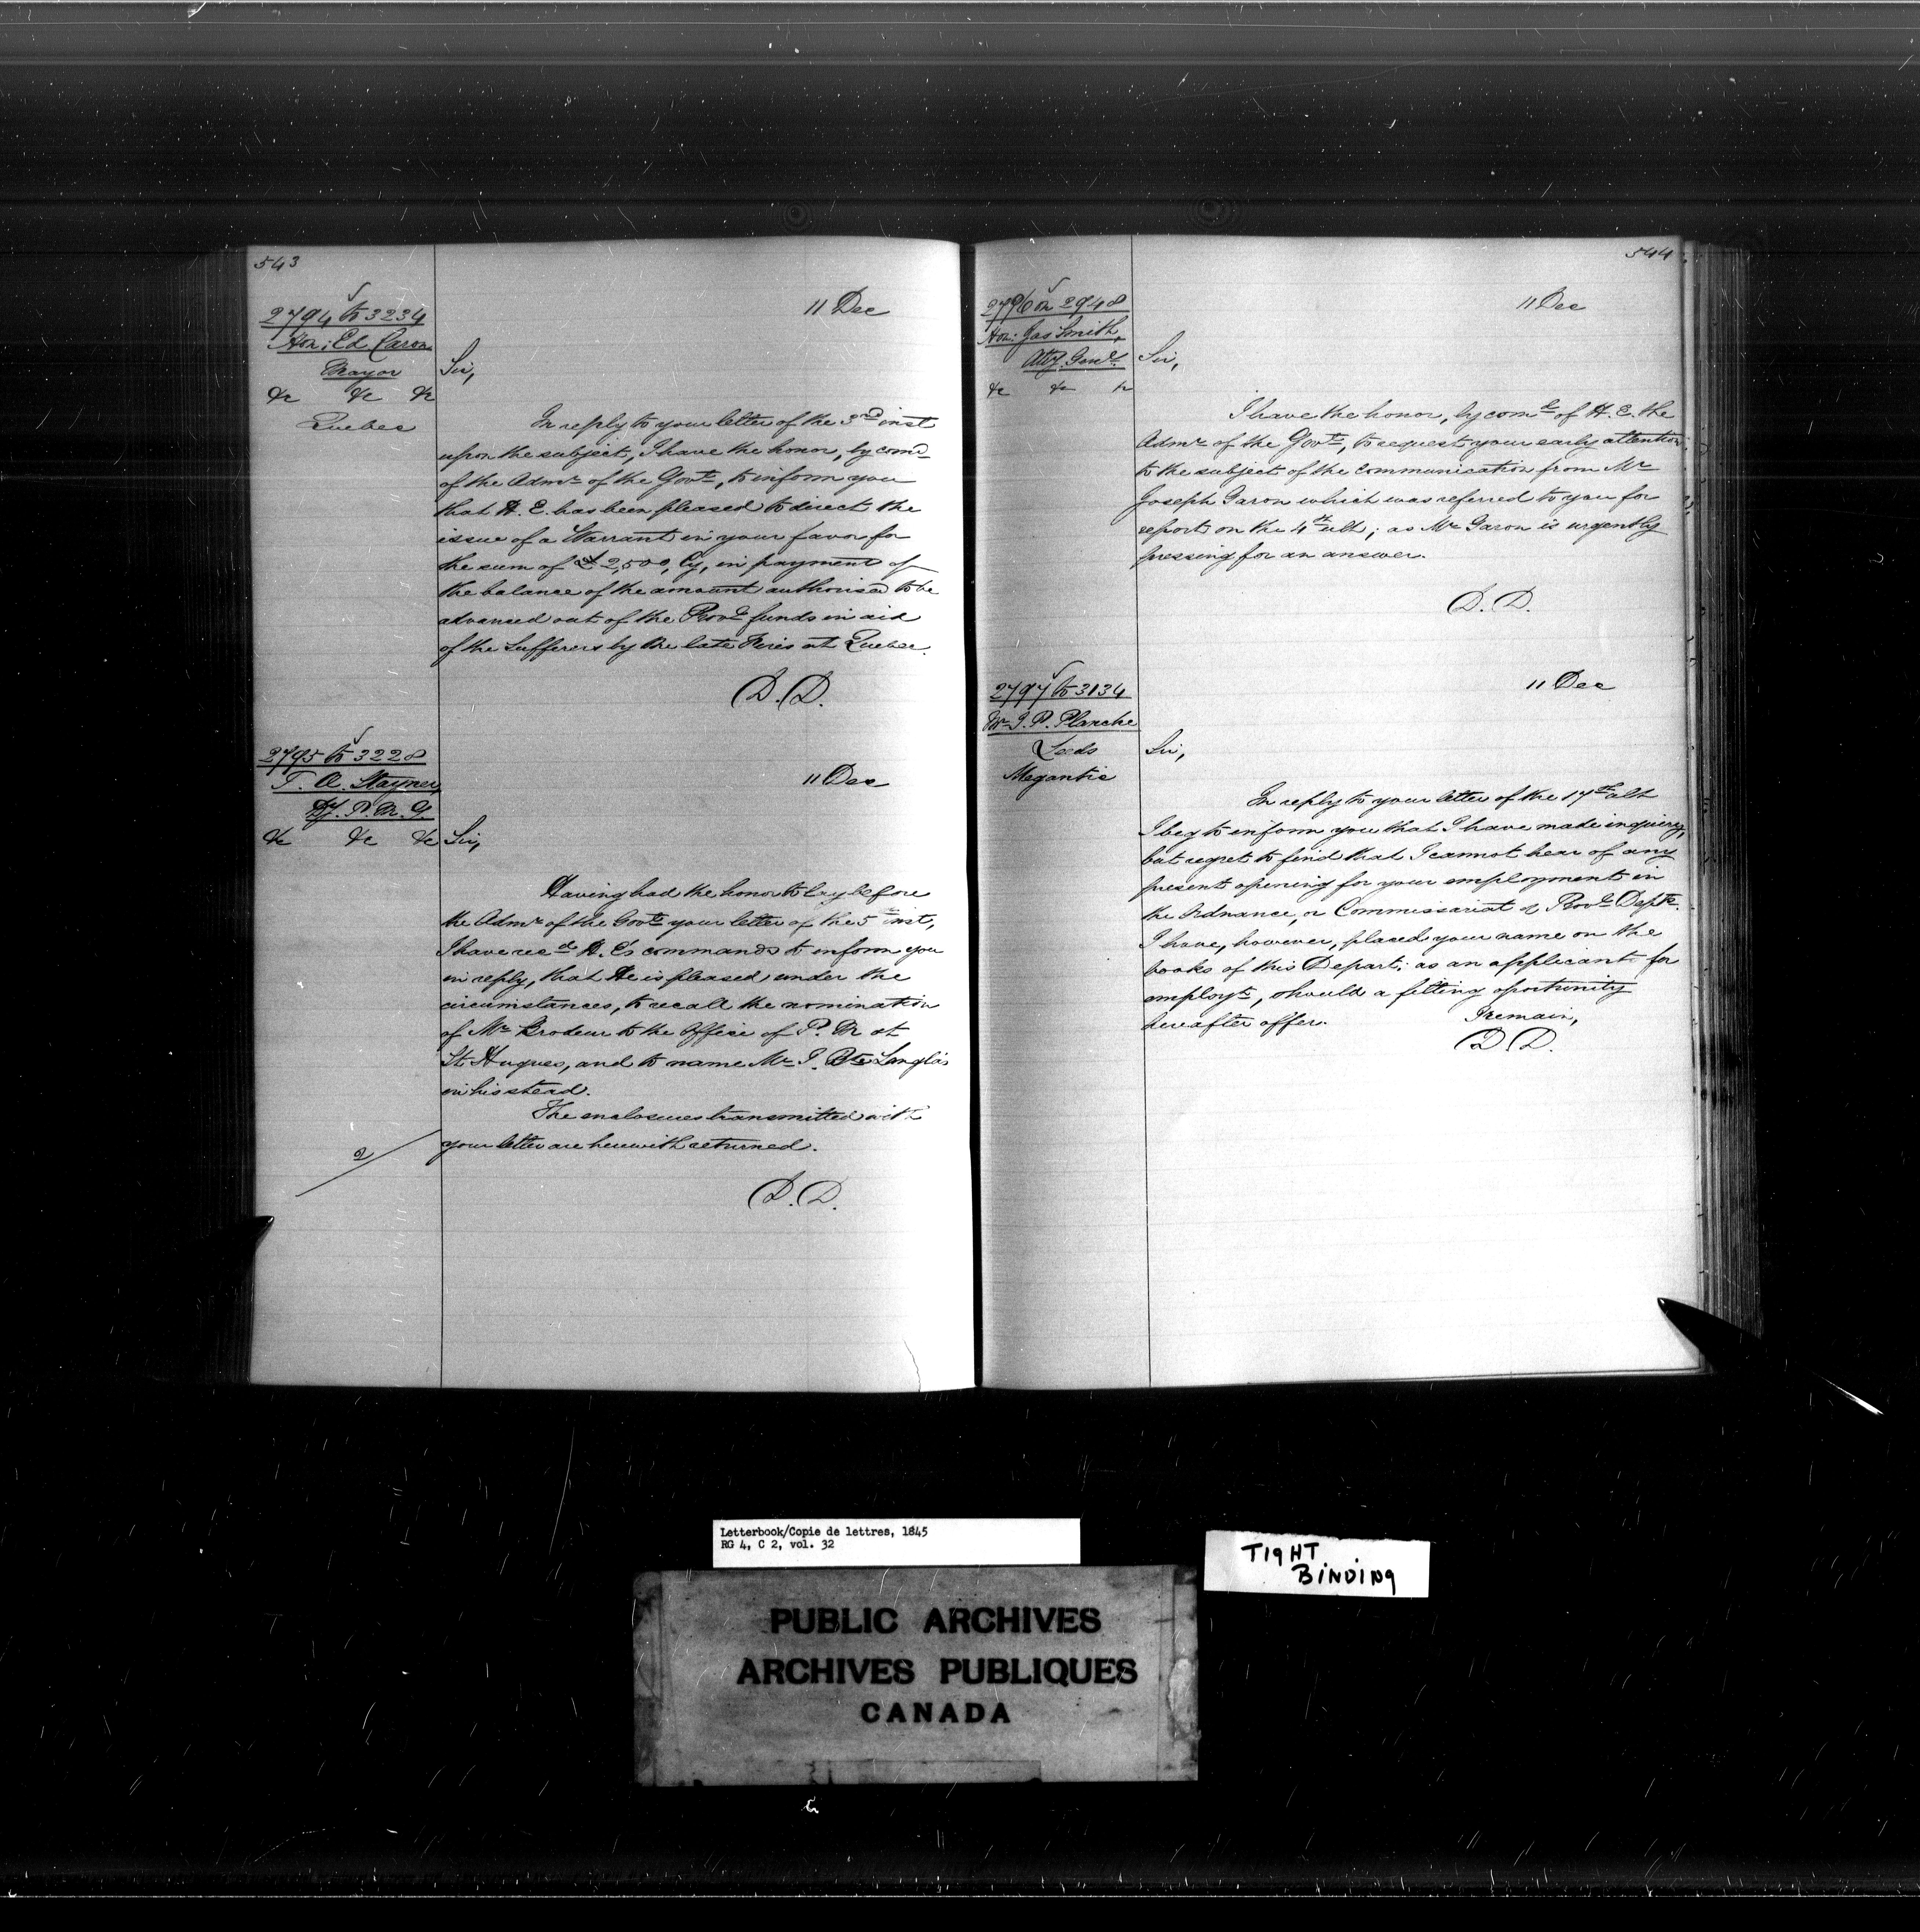 543
2794 to 3234
Hon: Ed Caron
Mayor
&c &c &c
Quebec
11 Dec
Sir,
In reply to your letter of the 3rd inst
upon the subject, I have the honor, by comd
of the Admr of the Govt, to inform you
that H. E. has been pleased to direct the
issue of a Warrant in your favor for
the sum of £2,500, Cy, in payment of
the balance of the amount authorised to be
advanced out of the Provl funds in aid
of the Sufferers by the late Fires at Quebec.
D. D.
2795 to 3228
T. A. Stayner
Dy. P. M. G.
&c &c &c
11 Dec
Sir,
Having had the honor to lay before
the Admr of the Govt your letter of the 5th inst,
I have recd H. E's commands to inform you
in reply, that He is pleased, under the
circumstances, to recall the nomination
of Mr Brodeur to the Office of P. M at
St. Hugues, and to name Mr J. Bte Langlois
in his stead.
The enclosures transmitted with
your letter are herewith returned.
2
D. D.
544
2796 on 2948
Hon: Jas Smith,
Atty Genl.
&c &c &c
11 Dec
Sir,
I have the honor, by comd of H. E. the
Admr of the Govt, to request your early attention
to the subject of the communication from Mr
Joseph Garon which was referred to you for
report on the 4th ult; as Mr Garon is urgently
pressing for an answer.
D. D.
2797 to 3134
Mr J. P. Planche
Leeds
Megantic
11 Dec
Sir,
In reply to your letter of the 17th ult
I beg to inform you that I have made inquiry,
but regret to find that I cannot hear of any
present opening for your employment in
the Ordnance, or Commissariat or Provl Depts.
I have, however, placed your name on the
books of this Depart: as an applicant for
employt, should a fitting oportunity
hereafter offer. I remain,
D. D.
Letterbook/Copie de lettres, 1845
RG 4, C 2, vol. 32
TIGHT
BINDING
PUBLIC ARCHIVES
ARCHIVES PUBLIQUES
CANADA